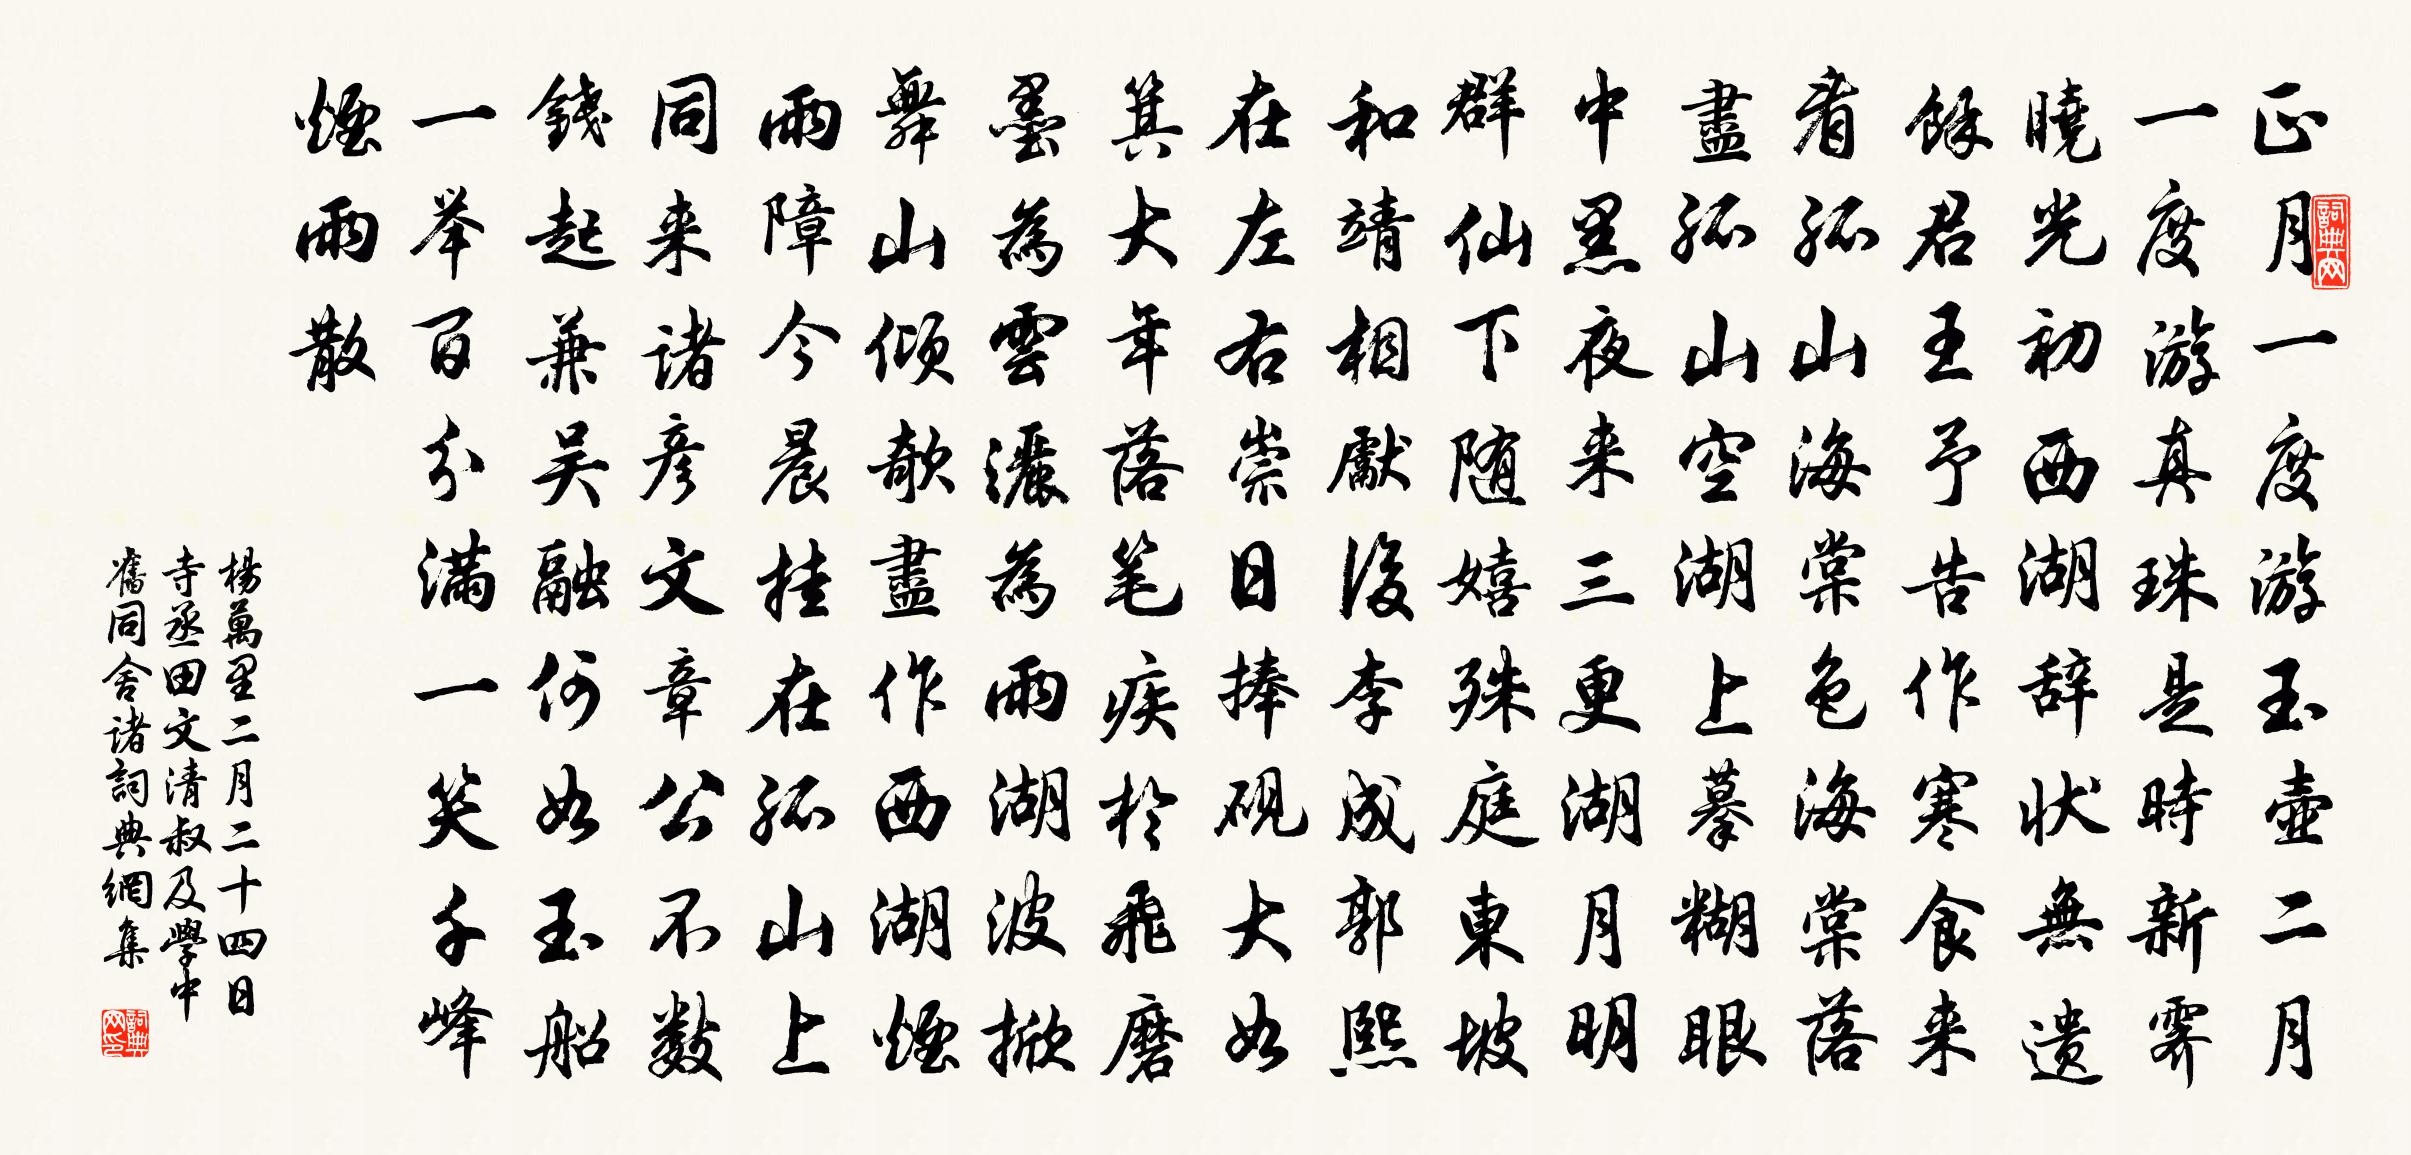 正月一度游玉壺二月
一度游真珠是時新霽
曉光初西湖辞状無遗
餘君王予告作寒食来
看孤山海棠色海棠落
盡孤山空湖上摹糊眼
中黑夜来三更湖月明
群仙下随嬉殊庭東坡
和靖相獻後李成郭熙
在左右崇日捧砚大如
箕大年落笔疾於飛磨
墨為雲灑為雨湖波掀
舞山傾欹盡作西湖煙
雨障今晨挂在孤山上
同来诸彦文章公不数
錢起兼吴融何如玉船
一举百分满一笑千峰
煙雨散
楊萬里二月二十四日
寺丞田文清叔及學中
舊同舍诸詞典網集
詞典网
詞典网印